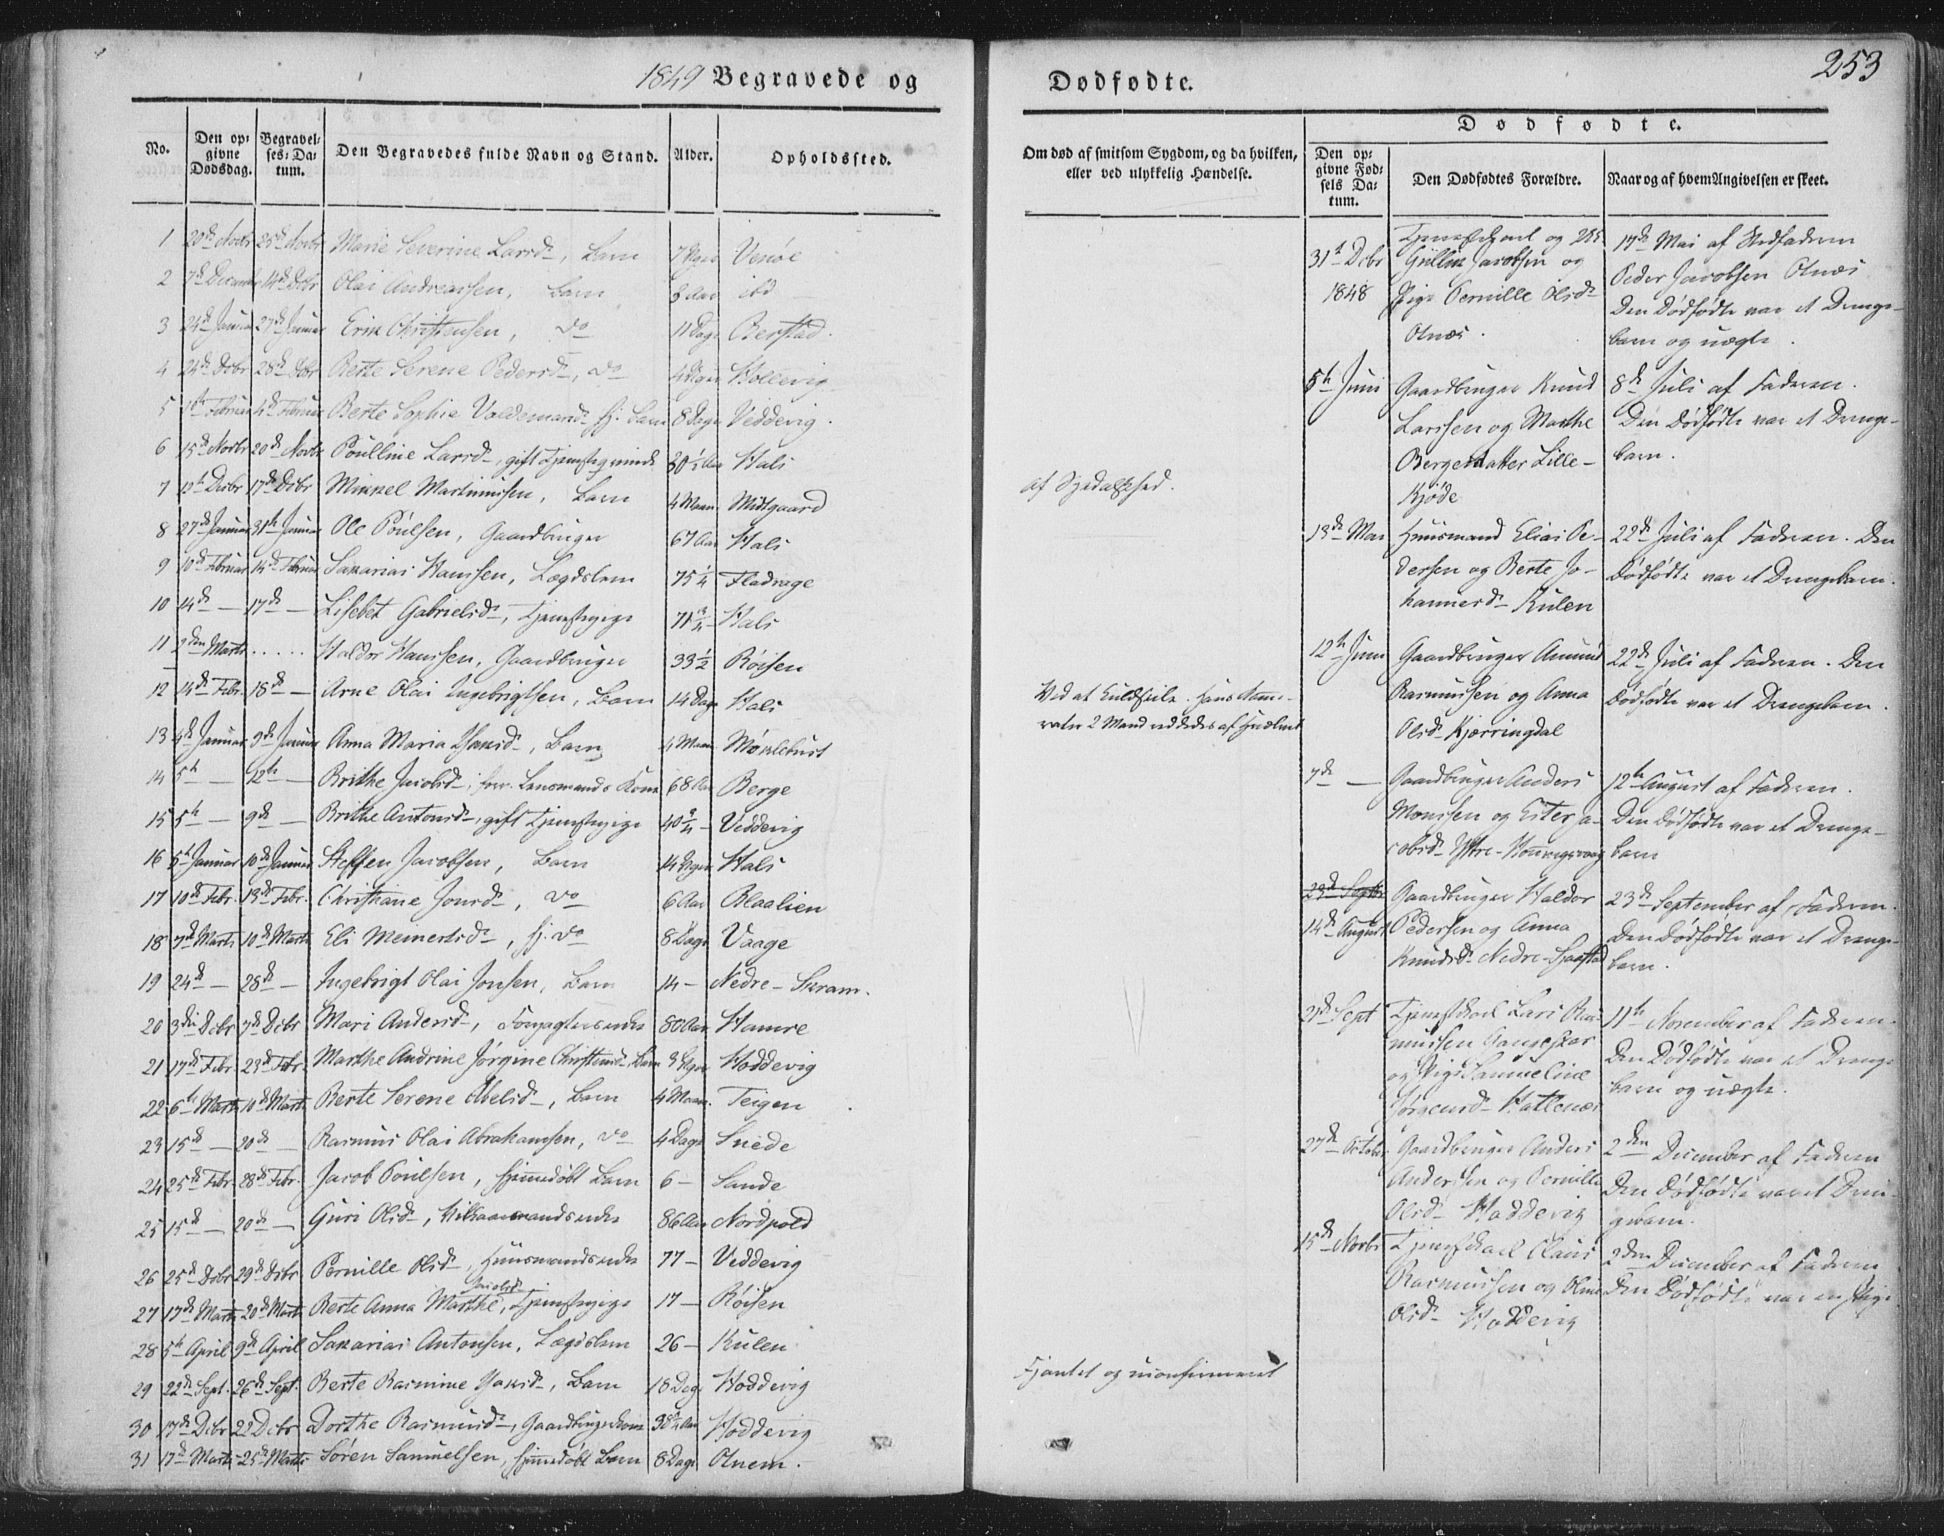 1849 Begravede og
Dødfødte.
253
No.
Den opgivne Dødsdag.
Begravelses-Datum.
Den Begravedes fulde Navn og Stand.
Alder.
Opholdssted.
Om død af smitsom Sygdom, og da hvilken,
eller ved ulykkelig Hændelse.
Dødfødte.
Den opgivne Fødsels Datum.
Den Dødfødtes Forældre.
Naar og af hvem Angivelsen er skeet.
1 20de Novbr 25de Novbr Marie Severine Larsd., Barn 7 Uger Venøe
2 7de Decembr 14de Dcbr Olai Andreassen, Barn 3 Aar ibd
3 24de Januar 27de Januar Erik Christensen, do 11 Dage Berstad.
4 24de Dcbr 28de Dcbr Berte Serene Pedersd., do 4 Uger Hollevig
5 1ste Februar 4de Februar Berte Sophie Valdemarsd. hj. Barn 8 Dage Veddevig.
6 15de Novbr 20de Novbr Poulline Larsd., gift Tjenestqvinde 30 1/2 Aar Hals
7 12te Decbr 17de Dcbr Mikkel Martinussen, Barn 4 Maan. Midtgaard
8 27de Januar 31te Januar Ole Poulsen, Gaardbruger 67 Aar Hals
9 10de Februar 14de Februar Sakarias Hanssen, Lægdslem 75 1/4 Fladrage
10 14de — 17de — Lisebet Gabrielsd., Tjenestepige 71 3/4 — Hals
11 2den Marts ..... Haldor Hanssen, Gaardbruger 33 1/2 Røisen
12 14de Febr. 18de — Arne Olai Ingebrigtsen, Barn 14 Dage Hals
13 4de Januar 9de Januar Anna Maria Isaksd., Barn 4 Maan. Møklebust
14 5te — 12te — Brithe Jacobsd., forr. Lensmands Kone 68 Aar Berge
15 5te — 9de — Brithe Antonsd., gift Tjenestepige 40 3/4 — Veddevig
16 5te Januar 10de Januar Steffen Jacobsen, Barn 14 Uger Hals
17 10de Febr. 13de Febr. Christiane Jonsd., do 6 Aar Blaalien
18 7de Marts 10de Marts Eli Meinertsd., hj. do 8 Dage Vaage
19 24de — 28de — Ingebrigt Olai Jonsen, Barn 14 — Nedre-Skram.
20 3die Dcbr 7de Dcbr Mari Andersd., Forpagterenke 80 Aar Hamre
21 17de Febr 23de Febr. Marthe Andrine Jørgine Christensd. Barn 3 Uger Hoddevig
22 6te Marts 10de Marts Berte Serene Abelsd., Barn 4 Maan. Teigen
23 15de — 20de — Rasmus Olai Abrahamsen, do 4 Dage Snede
24 25de Febr. 28de Febr. Jacob Poulsen, hjemmedøbt Barn 6 — Sande
25 15de — 20de — Guri Olsd., 86 Aar Nordpold
26 25de Dcbr 29de Dcbr Pernille Olsd., Huusmandsenke 77 — Veddevig
27 17de Marts 20de Marts Berte Anna Marthe Jacobsd., Tjenestepige 17 — Røisen
28 5te April 9de April Sakarias Antonsen, Lægdslem 26 — Kulen
29 22de Sept. 26de Sept. Berte Rasmine Isaksd., Barn 18 Dage Hoddevig
30 17de Dcbr 22 Dcbr Dorthe Rasmusd., Gaardbrugerkone 38 Aar Hoddevig
31 17de Marts 25de Marts Søren Samuelsen, hjemmedøbt Barn 8 Dage Otnem.
af Spedalskhed.
Ved at kuldseile. Hans Kame-
rater 2 Mand reddedes af Hvælvet
Fjantet og ukonfirmeret
31te Dcbr
1848
Tjenestekarl og
Gullik Jacobsen og
Pige Pernille Olsd.
Otnæs.
17de Mai af Bedfaderen
Peder Jacobsen Otnæs
Den Dødfødte var et Drenge-
barn og uægte.
5te Juni
Gaardbruger Knud
Larssen og Marthe
Bergesdatter Lille-
Kjøde
8de Juli af Faderen.
Den Dødfødte var et Drenge-
barn.
13de Mai
Huusmand Elias Pe-
dersen og Berte Jo-
hannesd. Kulen
22de Juli af Faderen. Den
Dødfødte var et Drengebarn.
12te Juni
Gaardbruger Amund
Rasmussen og Anna
Olsd. Kjærringdal
22de Juli af Faderen. Den
Dødfødte var et Drengebarn.
7de —
Gaardbruger Anders
Monssen og Ester Ja-
cobsd. Ytre-Honningsvaag
12te August af Faderen.
Den Dødfødte var et Drenge-
barn
23de Septbr
14de August
Gaardbruger Haldor
Pedersen og Anna
Knudsd. Nedre-Sjaastad
23de September af Faderen.
Den Dødfødte var et Drenge-
barn.
21de Sept
Tjenestkarl Lars Ras-
mussen Gaasekar
og Pige Samueline
Jørgensd. Hattenæs
11te November af Faderen.
Den Dødfødte var et Drenge
barn og uægte.
27de Octobr
Gaardbruger Anders
Andersen og Pernille
Olsd. Hoddevig
2den December af Faderen
Den Dødfødte var et Dren-
gebarn.
15de Novbr
Tjenestkarl Claus
Rasmussen og Oline
Olsd. Hoddevig
2den December af Faderen
Den Dødfødte var en Pige